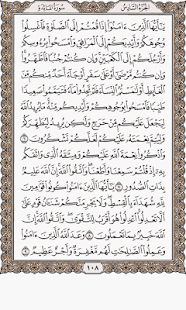 الجزء السادس سورة المائدة
يَٰٓأَيُّهَا ٱلَّذِينَ ءَامَنُوٓا۟ إِذَا قُمْتُمْ إِلَى ٱلصَّلَوٰةِ فَٱغْسِلُوا۟
وُجُوهَكُمْ وَأَيْدِيَكُمْ إِلَى ٱلْمَرَافِقِ وَٱمْسَحُوا۟ بِرُءُوسِكُمْ
وَأَرْجُلَكُمْ إِلَى ٱلْكَعْبَيْنِ وَإِن كُنتُمْ جُنُبًا فَٱطَّهَّرُوا۟
وَإِن كُنتُم مَّرْضَىٰٓ أَوْ عَلَىٰ سَفَرٍ أَوْ جَآءَ أَحَدٌ مِّنكُم مِّنَ ٱلْغَآئِطِ أَوْ
لَٰمَسْتُمُ ٱلنِّسَآءَ فَلَمْ تَجِدُوا۟ مَآءً فَتَيَمَّمُوا۟ صَعِيدًا طَيِّبًا
فَٱمْسَحُوا۟ بِوُجُوهِكُمْ وَأَيْدِيكُم مِّنْهُ مَا يُرِيدُ ٱللَّهُ
لِيَجْعَلَ عَلَيْكُم مِّنْ حَرَجٍ وَلَٰكِن يُرِيدُ لِيُطَهِّرَكُمْ
وَلِيُتِمَّ نِعْمَتَهُۥ عَلَيْكُمْ لَعَلَّكُمْ تَشْكُرُونَ ٦
وَٱذْكُرُوا۟ نِعْمَةَ ٱللَّهِ عَلَيْكُمْ وَمِيثَٰقَهُ ٱلَّذِى وَاثَقَكُم
بِهِۦٓ إِذْ قُلْتُمْ سَمِعْنَا وَأَطَعْنَا وَٱتَّقُوا۟ ٱللَّهَ إِنَّ ٱللَّهَ عَلِيمٌۢ
بِذَاتِ ٱلصُّدُورِ ٧ يَٰٓأَيُّهَا ٱلَّذِينَ ءَامَنُوا۟ كُونُوا۟ قَوَّٰمِينَ
لِلَّهِ شُهَدَآءَ بِٱلْقِسْطِ وَلَا يَجْرِمَنَّكُمْ شَنَـَٔانُ قَوْمٍ عَلَىٰٓ
أَلَّا تَعْدِلُوا۟ ٱعْدِلُوا۟ هُوَ أَقْرَبُ لِلتَّقْوَىٰ وَٱتَّقُوا۟ ٱللَّهَ إِنَّ ٱللَّهَ
خَبِيرٌۢ بِمَا تَعْمَلُونَ ٨ وَعَدَ ٱللَّهُ ٱلَّذِينَ ءَامَنُوا۟
وَعَمِلُوا۟ ٱلصَّٰلِحَٰتِ لَهُم مَّغْفِرَةٌ وَأَجْرٌ عَظِيمٌ ٩
١٠٨